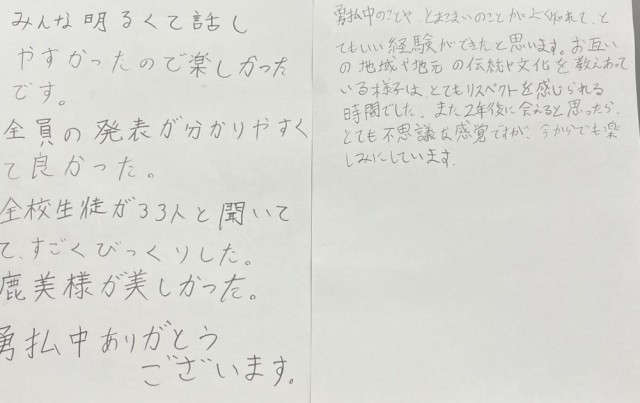 みんな明るくて話し
やすかったので楽しかった
です。
全員の発表が分かりやすく
て良かった。
全校生徒が33人と聞いて
て、すごくびっくりした。
鹿美様が美しかった。
勇払中ありがとう
ございます。
勇払中のことや、とまこまいのことがよく知れて、と
てもいい経験ができたと思います。お互い
の地域や地元の伝統や文化を教えあって
いる様子は、とてもリスペクトを感じられる
時間でした。また2年後に会えると思ったら、
とても不思議な感覚ですが、今からでも楽
しみにしています。